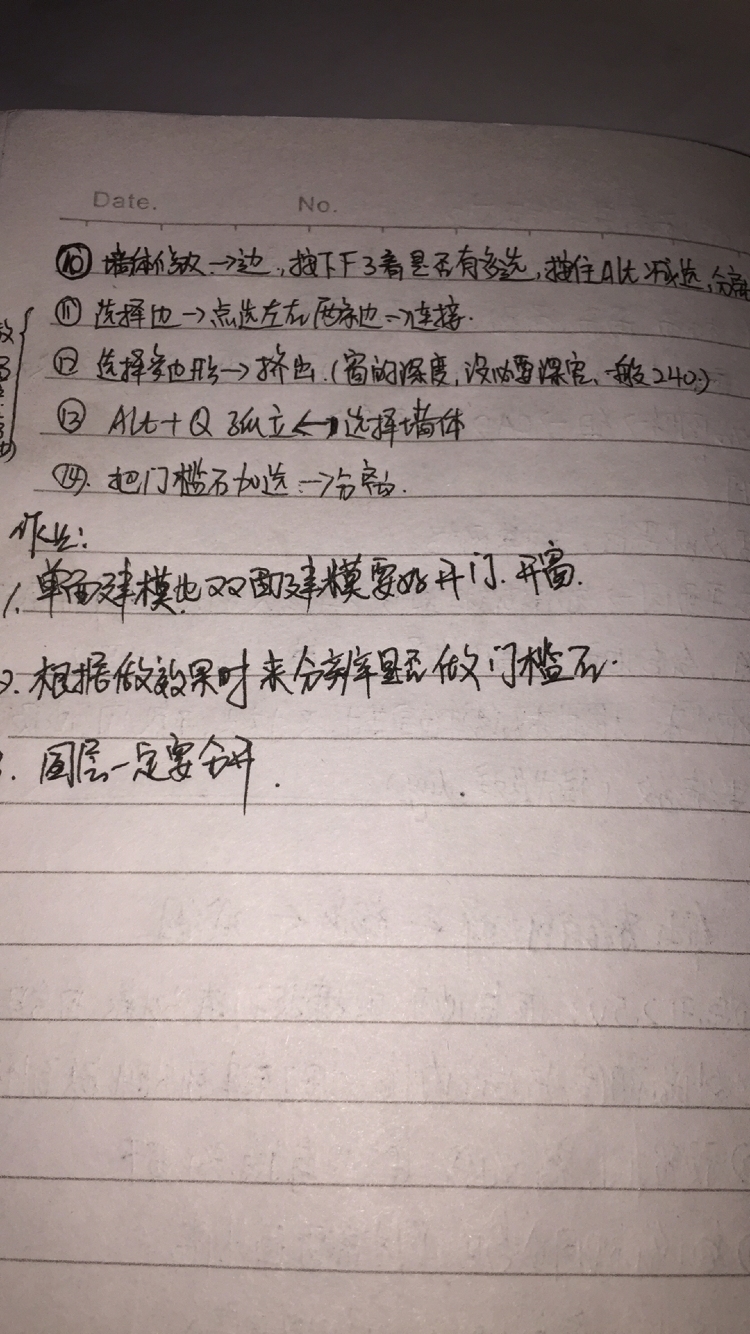 Date. No.
⑩ 墙体修改→边,按下F3看是否有多选,按住Alt减选,分离
⑪ 选择边→点选左右两条边→连接.
⑫ 选择多边形→挤出.(窗的深度,没必要深究、一般240.)
⑬ Alt+Q 孤立←→选择墙体
⑭. 把门槛石加选→分离.
作业:
1. 单面建模比双面建模要好开门.开窗.
2. 根据做效果时来分辨是否做门槛石.
3. 图层一定要分开.